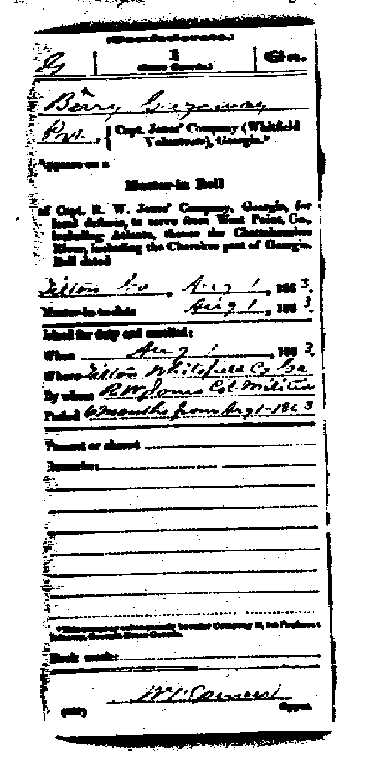 (Confederate.)
G 1 Ga.
Berry
Pvt., Capt. Jones' Company (Whitfield
Volunteers), Georgia.*
Appears on a
Muster-in Roll
of Capt. R. W. Jones' Company, Georgia, for
local defense, to serve from West Point, Ga.,
including Atlanta, thence the Chattahoochee
River, including the Cherokee part of Georgia.
Roll dated
Tilton Ga, Aug 1, 1863.
Muster-in to date Aug 1, 1863.
Joined for duty and enrolled:
When Aug 1, 1863.
Where Tilton Whitfield Co Ga
By whom R. W. Jones Col Militia
Period 6 months from Aug 1-1863
Present or absent
Remarks:
Book mark:
Copyist.